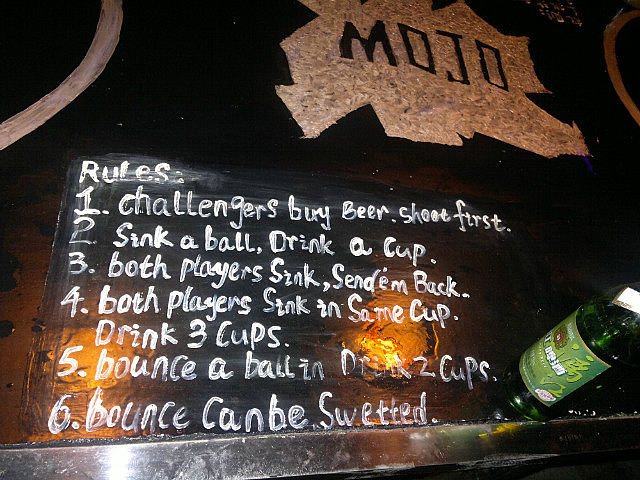 MOJO
Rules:
1. challengers buy Beer. shoot first.
2 Sink a ball, Drink a Cup.
3. both players Sink, Send'em Back.
4. both players Sink in Same Cup.
Drink 3 Cups.
5. bounce a ball in Drink 2 Cups.
6. bounce Can be Swetted.